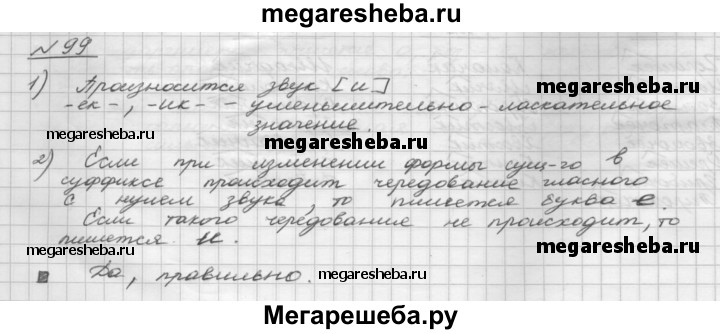 megaresheba.ru
№ 99
1) Произносится звук [и]
-ек-, -ик- - уменьшительно-ласкательное
megaresheba.ru
значение.
megaresheba.ru
2) Если при изменении формы сущ-го в
суффиксе происходит чередование гласного
с нулем звука, то пишется буква е.
megaresheba.ru
Если такого чередования не происходит, то
пишется и.
megaresheba.ru
megaresheba.ru
Да, правильно.
megaresheba.ru
Мегарешеба.ру